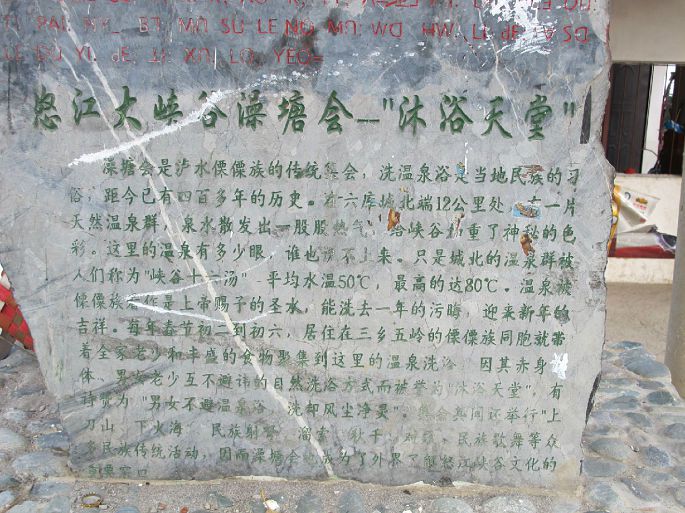 TI PAI NY_ BT, MO SU LE NO, MO: WO, HW, LE dE
LE DU YI, dE, XU, LO, YEO=
怒江大峡谷澡塘会--"沐浴天堂"
澡塘会是泸水傈僳族的传统集会，洗温泉浴是当地民族的习
俗，距今已有四百多年的历史。在六库城北端12公里处，有一片
天然温泉群，泉水散发出一股股热气，给峡谷 重了神秘的色
彩。这里的温泉有多少眼，谁也说不上来。只是城北的温泉群被
人们称为"峡谷十六汤"，平均水温50℃，最高的达80℃。温泉被
傈僳族看作是上帝赐予的圣水，能洗去一年的污晦，迎来新年的
吉祥。每年春节初二到初六，居住在三乡五岭的傈僳族同胞就带
着全家老少和丰盛的食物聚集到这里的温泉洗浴，因其赤身
体、男女老少互不避讳的自然洗浴方式而被誉为"沐浴天堂"，有
诗赞为"男女不避温泉浴，洗却风尘净灵"。集会期间还举行"上
刀山，下火海"、民族射弩、溜索、秋千、对歌、民族歌舞等众
多民族传统活动，因而澡塘会也成为了外界了解怒江峡谷文化的
重要窗口